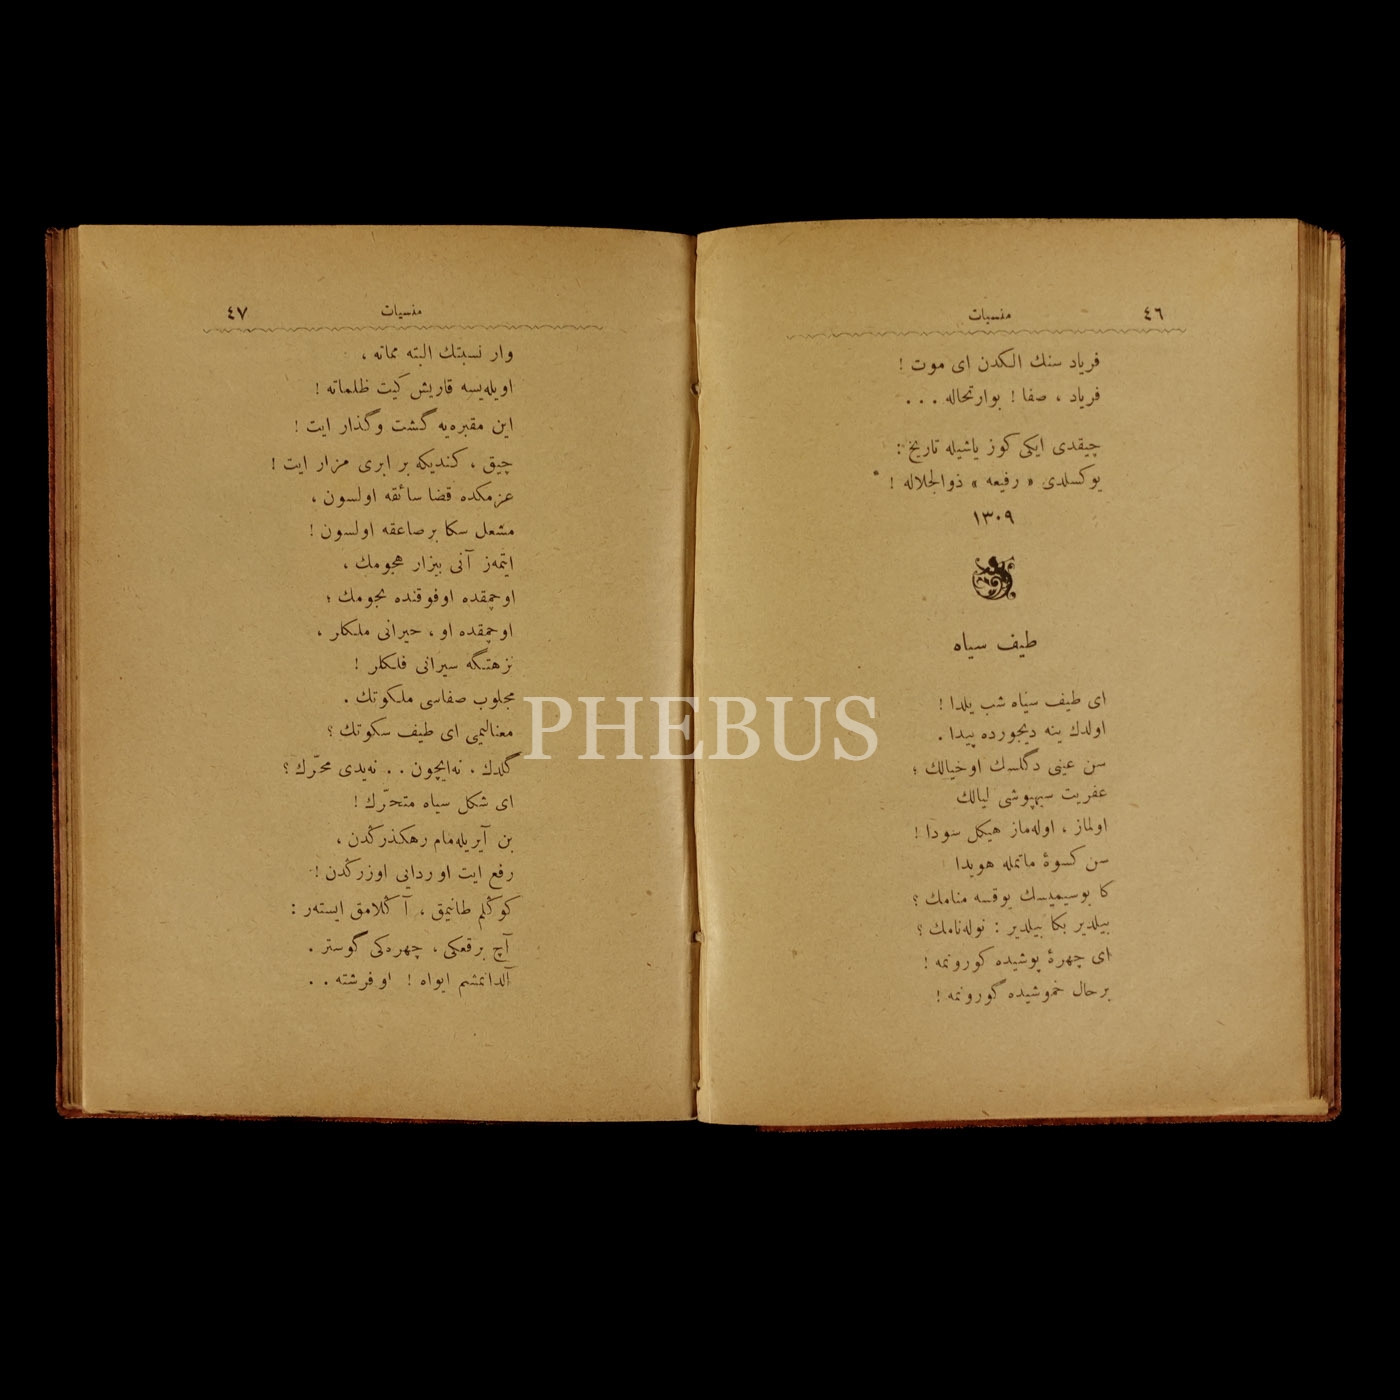 ٤٦
منسيات
فرياد سنك الكدن اى موت !
فرياد ، صفا ! بوارتحاله . . .
چيقدى ايكى كوز ياشيله تاريخ :
يوكسلدى « رفيعه » ذوالجلاله !
١٣٠٩
طيف سياه
اى طيف سياه شب يلدا !
اولدك ينه ديجورده پيدا .
سن عينى دگلسه‌ك اوخيالك ؛
عفريت سيهپوشى ليالك
اولماز ، اوله‌ماز هيكل سودا !
سن كسوۀ ماتمله هويدا
كا بوسميسك يوقسه منامك ؟
بيلدير بكا بيلدير : نوله‌نامك ؟
اى چهرۀ پوشيده كورونمه !
برحال خموشيده گورونمه !
٤٧
منسيات
وار نسبتك البته مماته ،
اويله‌يسه قاريش كيت ظلماته !
اين مقبره‌يه گشت وگذار ايت !
چيق ، كنديكه بر ابرى مزار ايت !
عزمكده قضا سائقه اولسون ،
مشعل سكا برصاعقه اولسون !
ايتمه‌ز آنى بيزار هجومك ،
اوچمقده اوفوقنده نجومك ؛
اوچمقده او ، حيرانى ملكلر ،
نزهتگه سيرانى فلكلر !
مجلوب صفاسى ملكوتك .
معناليمى اى طيف سكوتك ؟
گلدك . نه‌ايچون . . نه‌يدى محرّك ؟
اى شكل سياه متحرّك !
بن آيريله‌مام رهكذرڭدن ،
رفع ايت او ردايى اوزرڭدن !
كوڭلم طانيمق ، آڭلامق ايسته‌ر :
آچ برقعكى ، چهره‌كى گوستر .
آلدانمشم ايواه ! او فرشته . .
PHEBUS